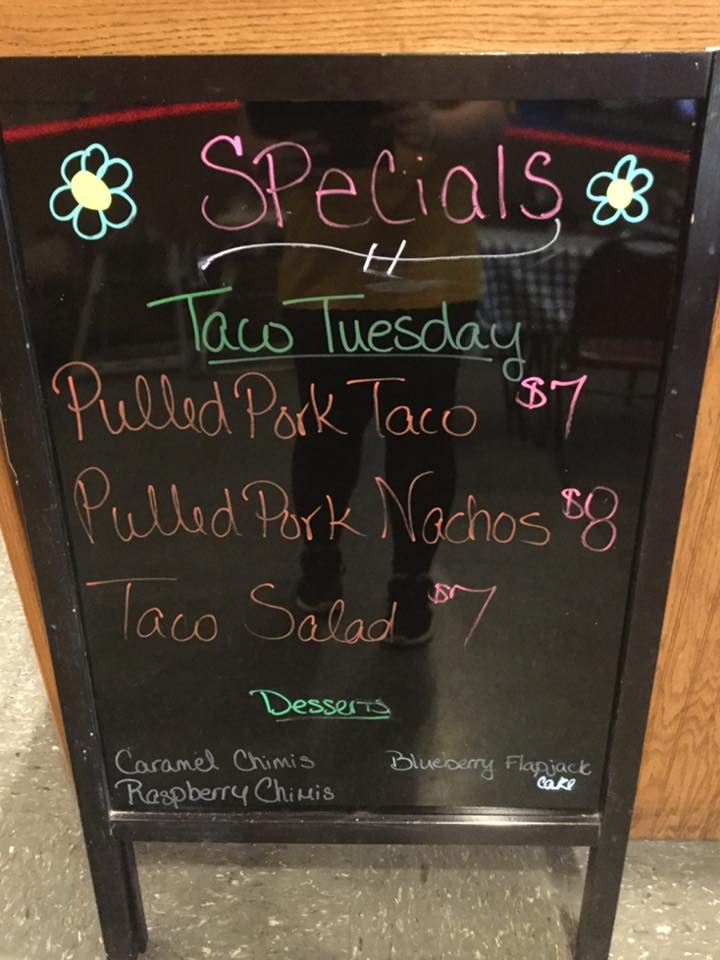 Specials
Taco Tuesday
Pulled Pork Taco $7
Pulled Pork Nachos $8
Taco Salad $7
Desserts
Caramel Chimis
Raspberry Chimis
Blueberry Flapjack
cake